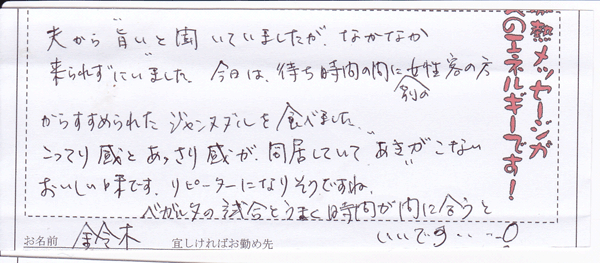 夫から"旨い"と聞いていましたが、なかなか
来られずにいました。今日は、待ち時間の間に別の女性客の方
からすすめられたジャンヌダルを食べました。
こってり感とあっさり感が、同居していて"あき"がこない
おいしい味です。リピーターになりそうですね。
ベガルタの試合とうまく時間が間に合うと
いいです・・・!
お名前 鈴木 宜しければお勤め先
熱メッセージが
のエネルギーです!